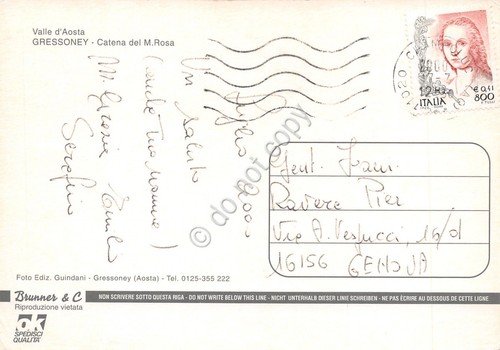 Valle d'Aosta
GRESSONEY - Catena del M.Rosa
Luglio 2000
Un saluto
M. Grazia Emilio
Serafino
do not copy
2000
ITALIA
€ 0,41
800
Gent. Fam.
Ravera Pier
Via A. Vespucci, 16/d
16156 GENOVA
Foto Ediz. Guindani - Gressoney (Aosta) - Tel. 0125-355 222
Brunner & C
Riproduzione vietata
NON SCRIVERE SOTTO QUESTA RIGA - DO NOT WRITE BELOW THIS LINE - NICHT UNTERHALB DIESER LINIE SCHREIBEN - NE PAS ÉCRIRE AU DESSOUS DE CETTE LIGNE
ok
SPEDISCI
QUALITA'